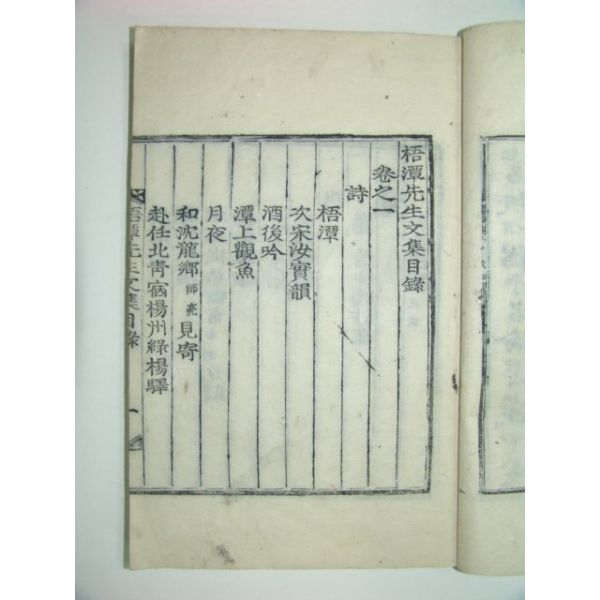 梧潭先生文集目錄
卷之一
詩
梧潭
次宋汝實韻
酒後吟
潭上觀魚
月夜
和沈龍鄉師亮見寄
赴任北靑宿楊州綠楊驛
梧潭先生文集目錄
一